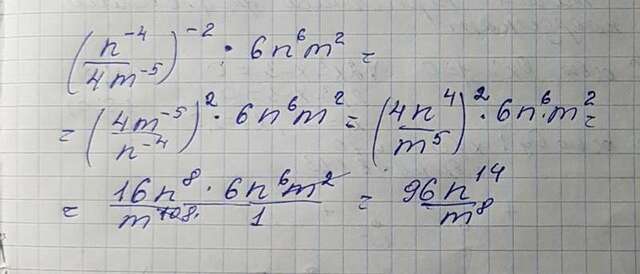 (n⁻⁴/4m⁻⁵)⁻² · 6n⁶m² =
= (4m⁻⁵/n⁻⁴)² · 6n⁶m² = (4n⁴/m⁵)² · 6n⁶·m² =
= 16n⁸ · 6n⁶m²/m¹⁰ ⁸· 1 = 96n¹⁴/m⁸